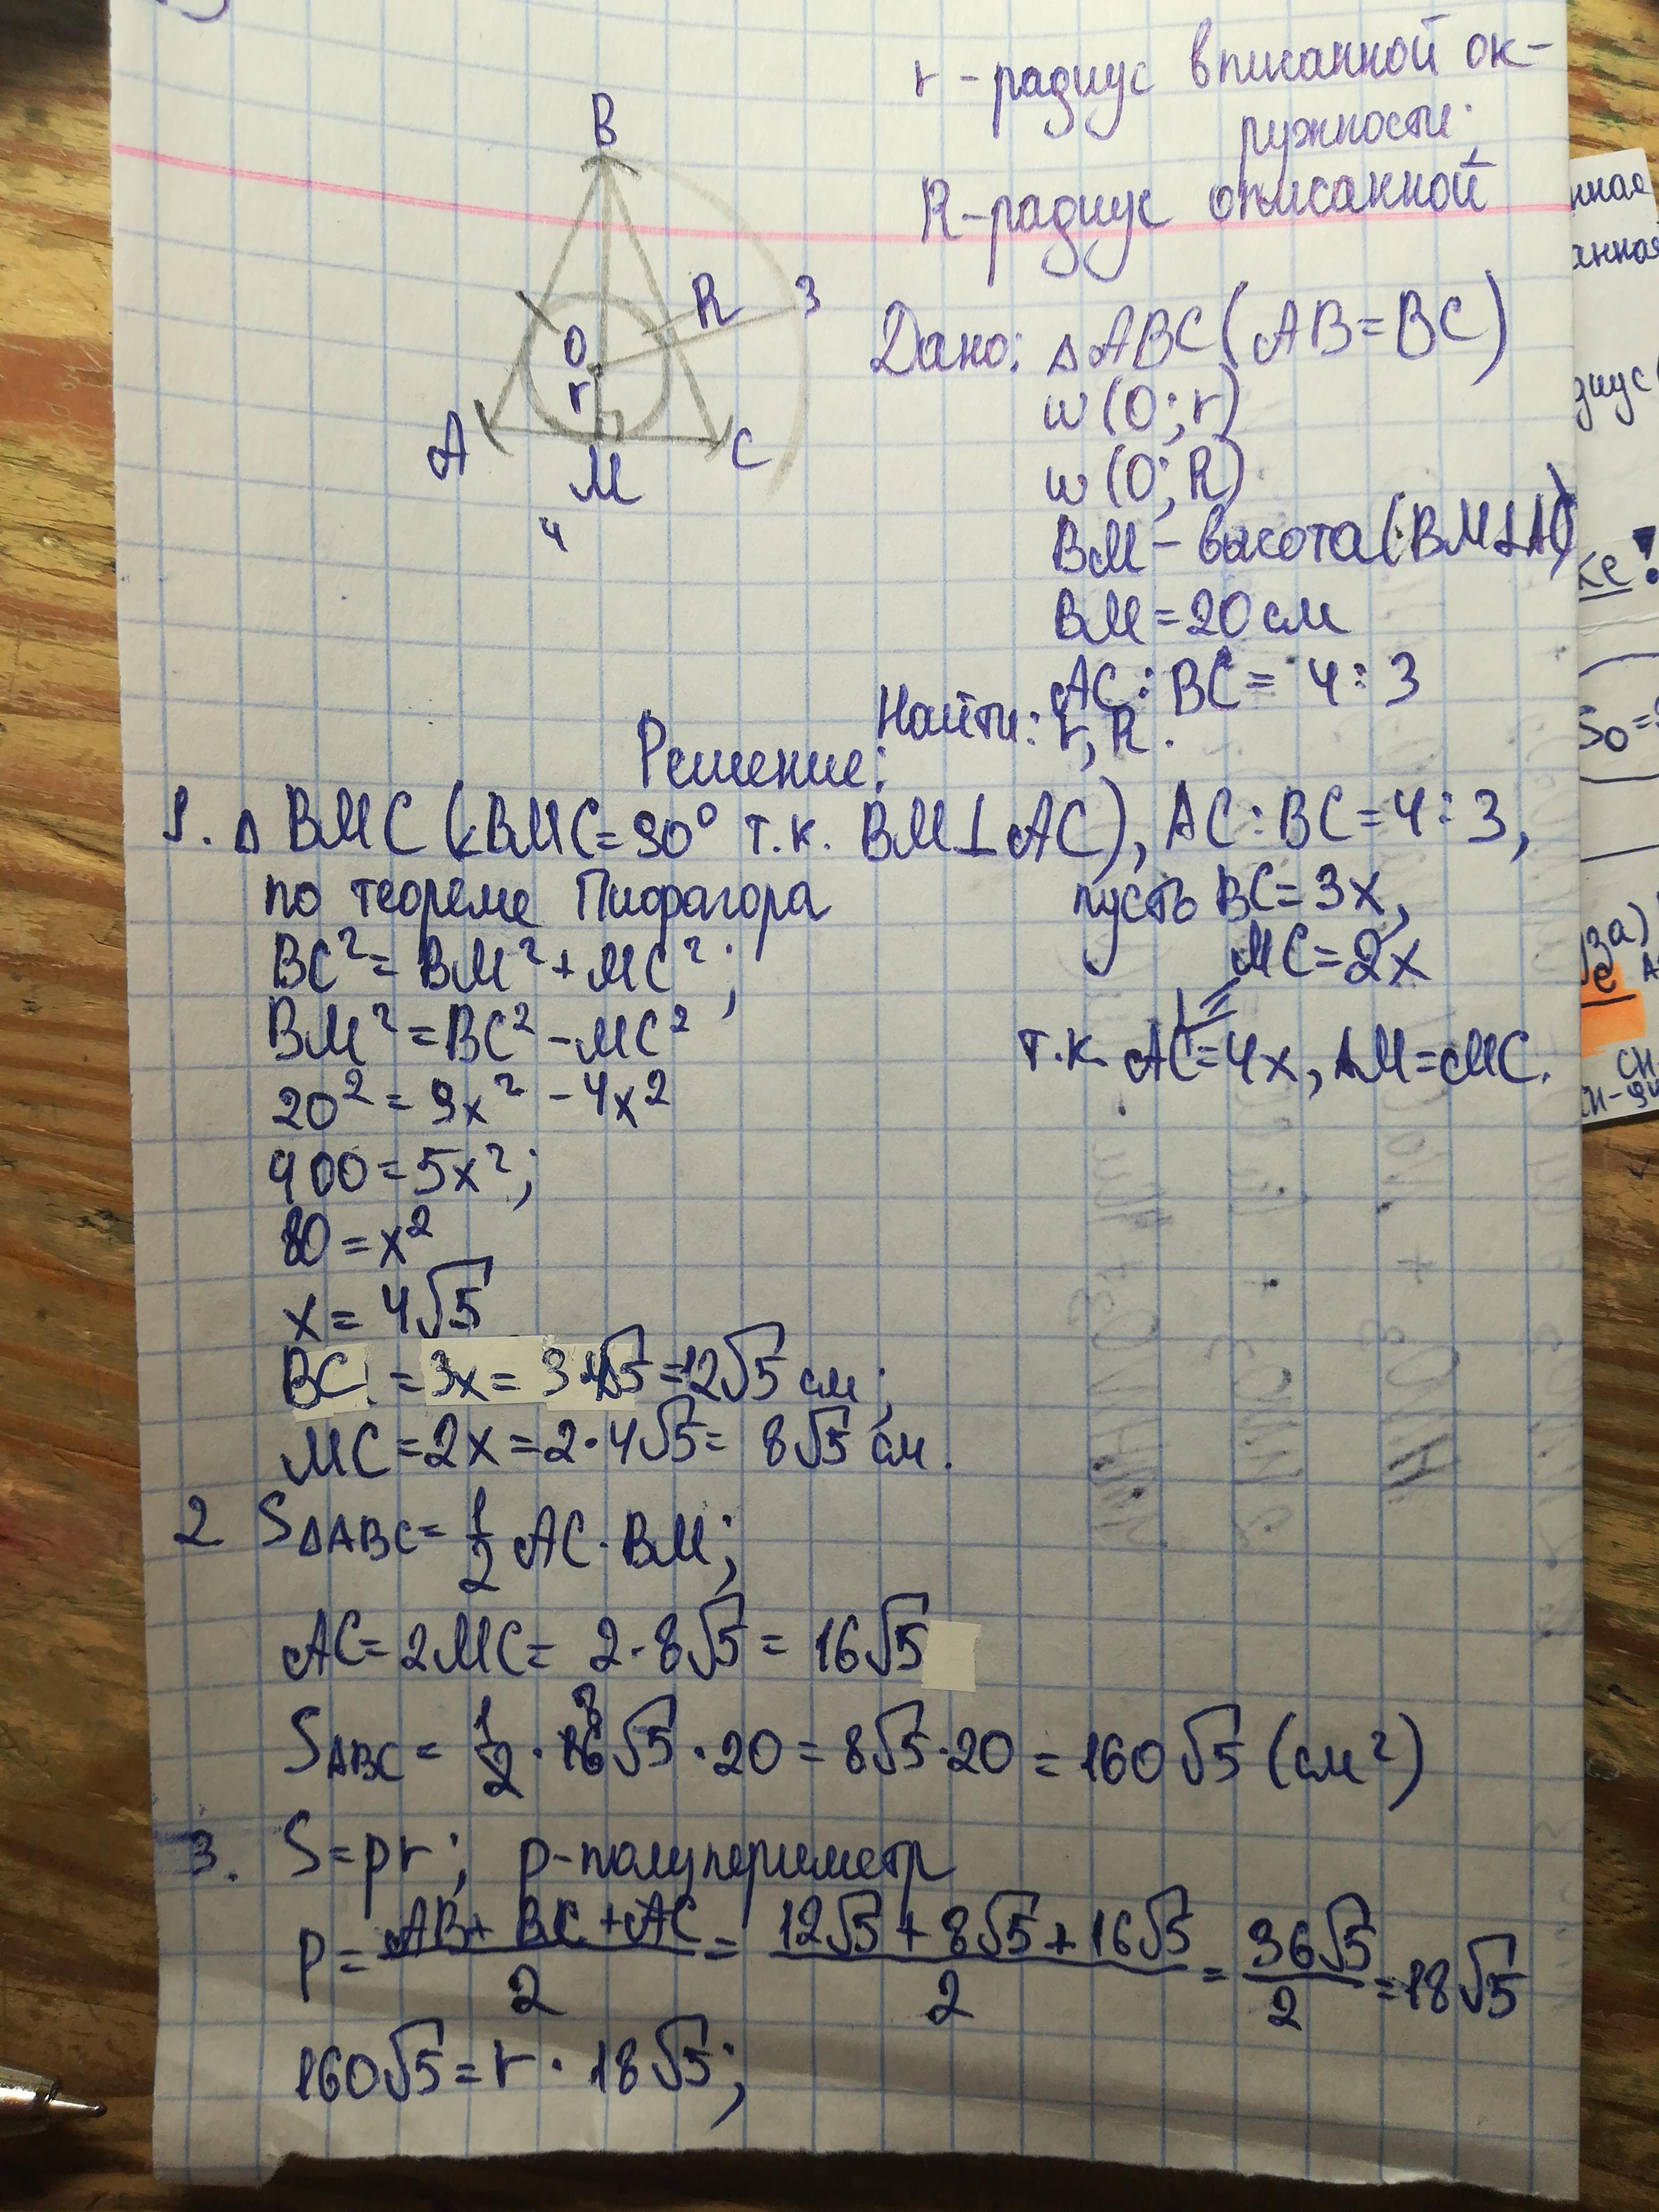 r - радиус вписанной ок-
ружности;
R - радиус описанной
B
R
3
O
r
A
M
C
4
Дано: △ABC (AB=BC)
w (O; r)
w (O; R)
BM - высота (BM⊥AC)
BM = 20 см
AC : BC = 4 : 3
Найти: r, R.
Решение:
1. △ BMC (∠BMC=90° т.к. BM⊥AC), AC:BC=4:3,
по теореме Пифагора пусть BC=3x,
BC²= BM²+MC²; MC=2x
BM²=BC²-MC² т.к. AC=4x, AM=MC.
20²=9x²-4x²
400=5x²;
80=x²
x=4√5
BC = 3x= 3·4√5=12√5 см;
MC=2x=2·4√5= 8√5 см.
2 S△ABC= 1/2 AC·BM;
AC=2MC= 2·8√5= 16√5
SABC = 1/2 · 16 8 √5 · 20 = 8√5·20 = 160√5 (см²)
3. S=pr; p-полупериметр
P= (AB+BC+AC)/2 = (12√5+8√5+16√5)/2 = 36√5/2 =18√5
160√5=r·18√5;
нная
анная
диус
ке!